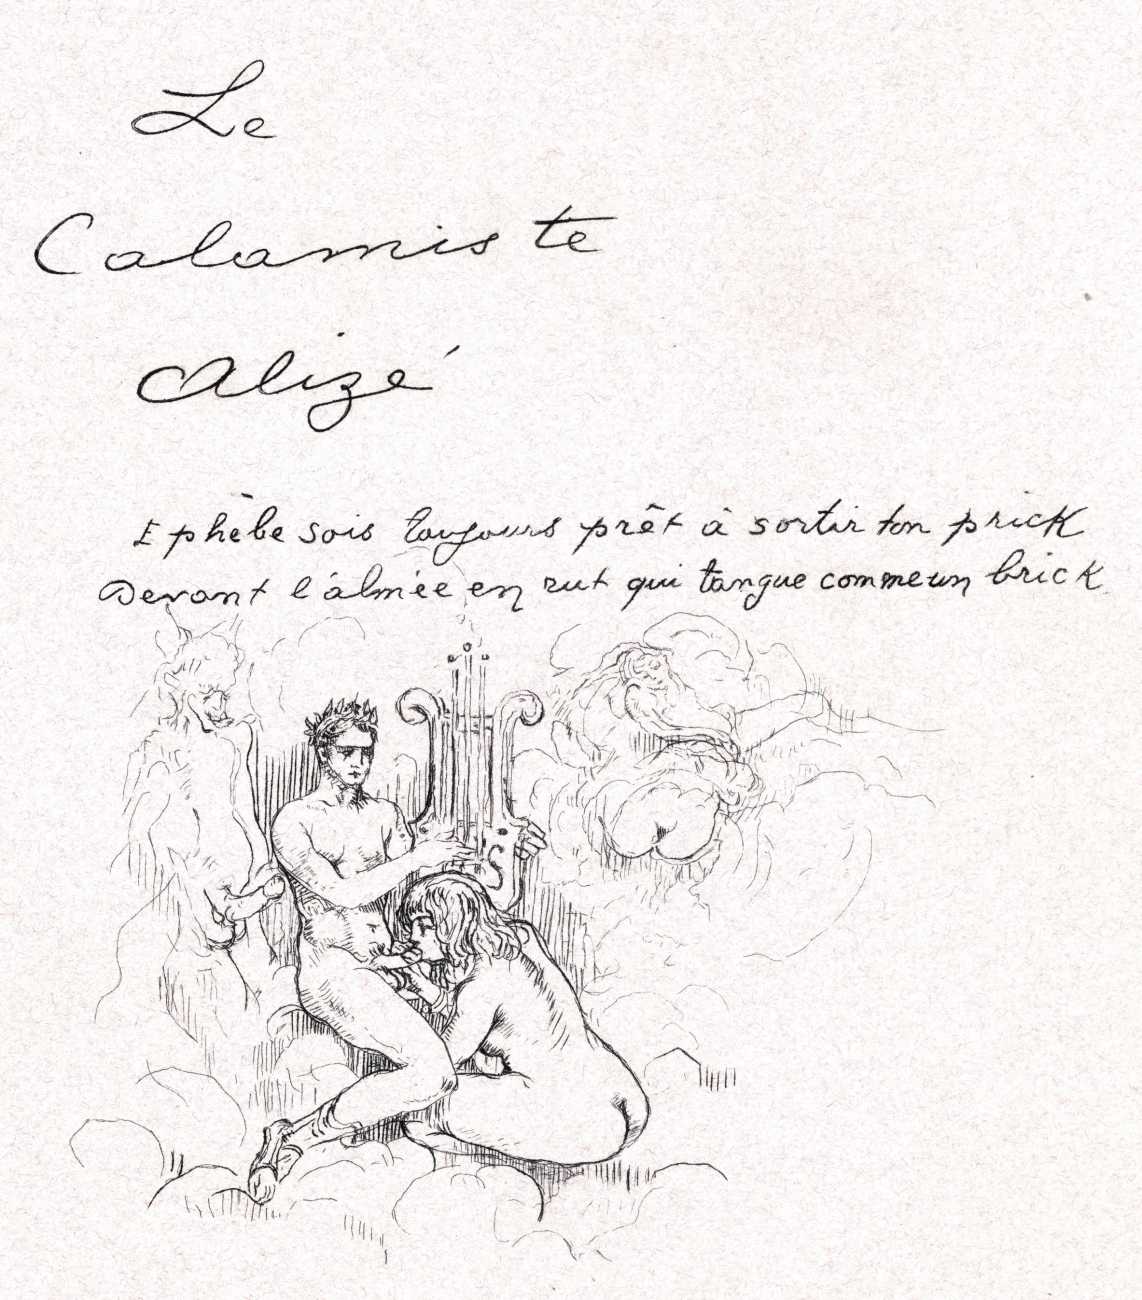 Le
Calamiste
Alizé
Ephèbe sois toujours prêt à sortir ton prick
Devant l'almée en rut qui tangue comme un brick